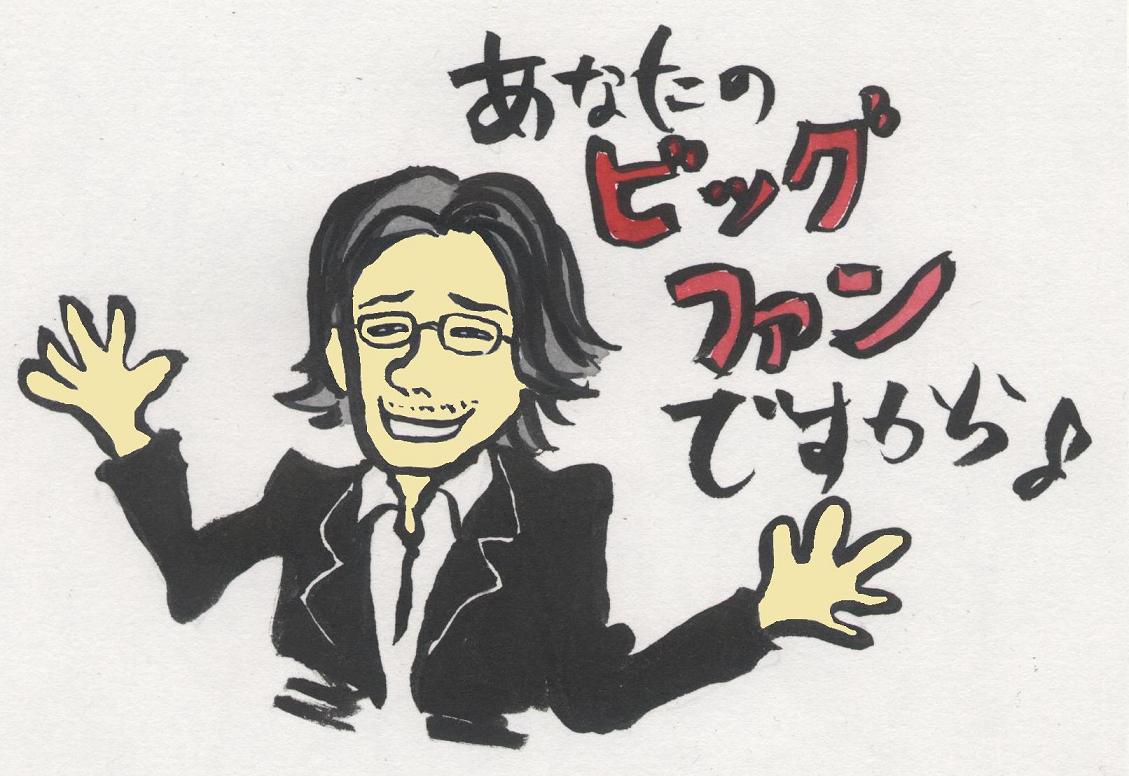 あなたの
ビッグ
ファン
ですから♪